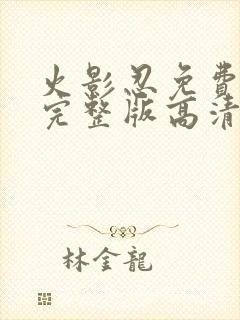 火影忍免費
完整版高清
林金龍